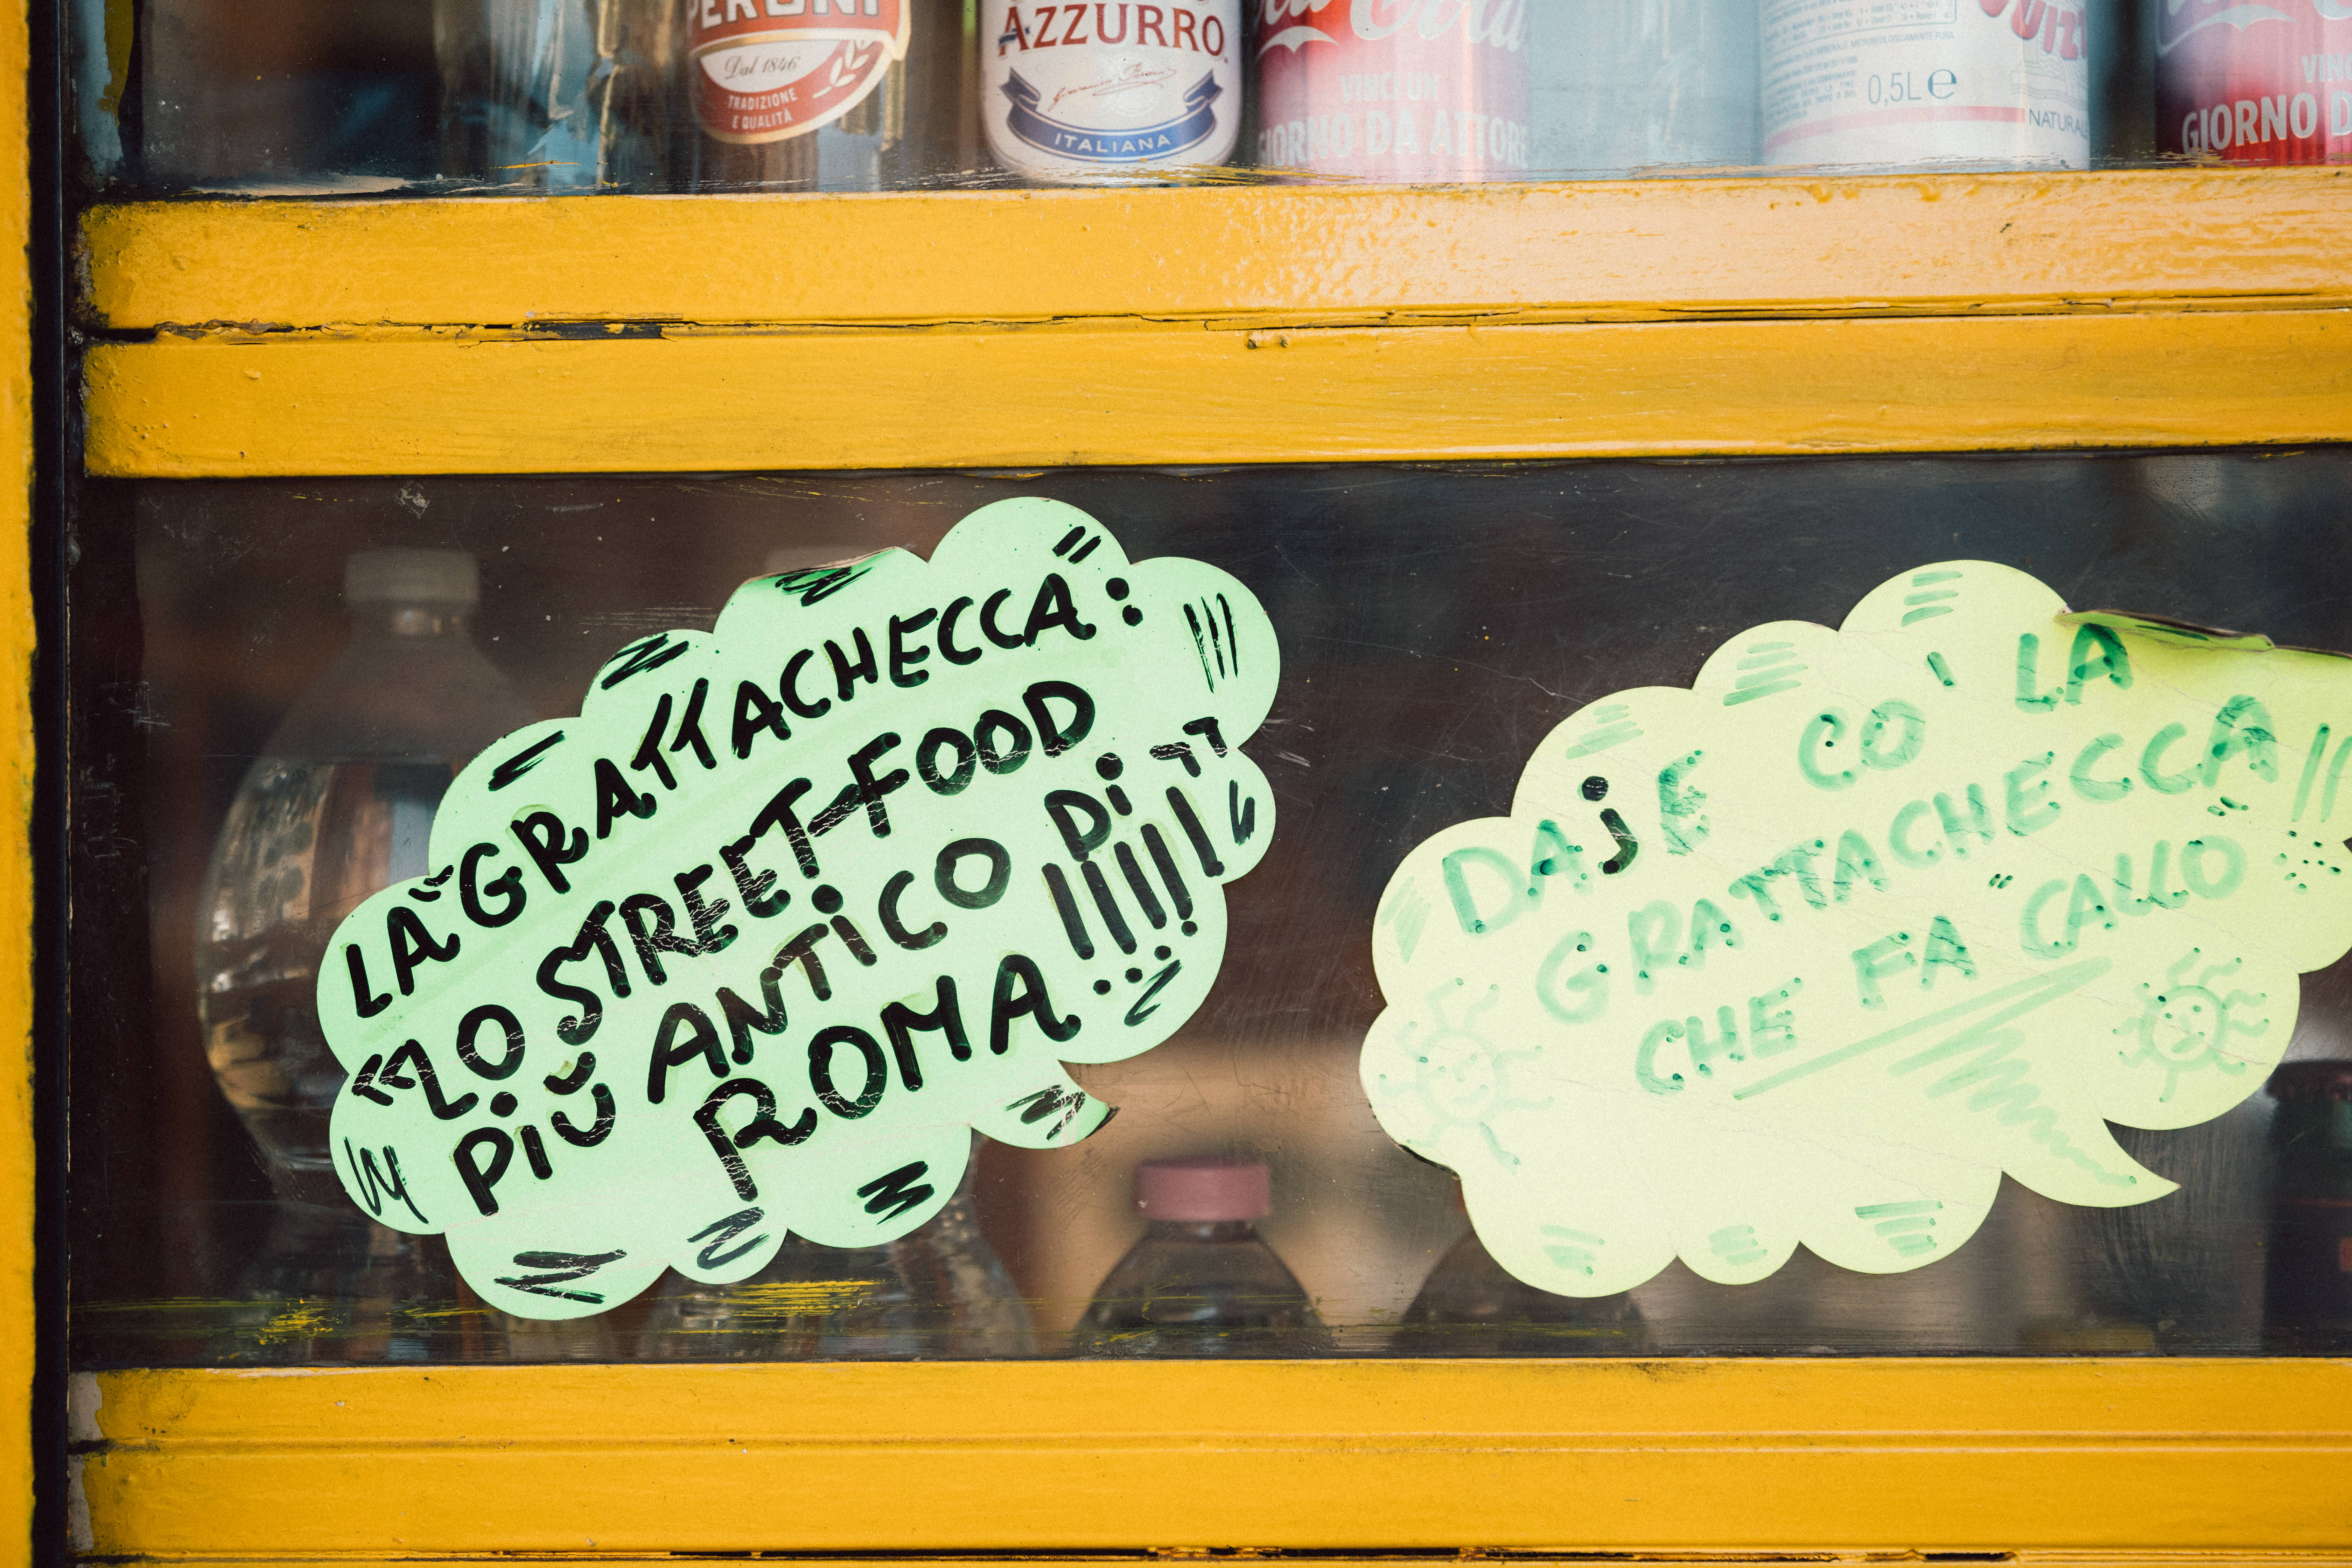 PERONI
Dal 1846
TRADIZIONE
E QUALITÀ
AZZURRO
ITALIANA
Coca-Cola
VINCI UN
GIORNO DA ATTORE
0,5L e
NATURAL
VIN
GIORNO D
LA "GRATTACHECCA":
"LO STREET-FOOD
PIÙ ANTICO Di
ROMA!!!!"
DAJE CO' LA
GRATTACHECCA!!
CHE FA "CALLO"